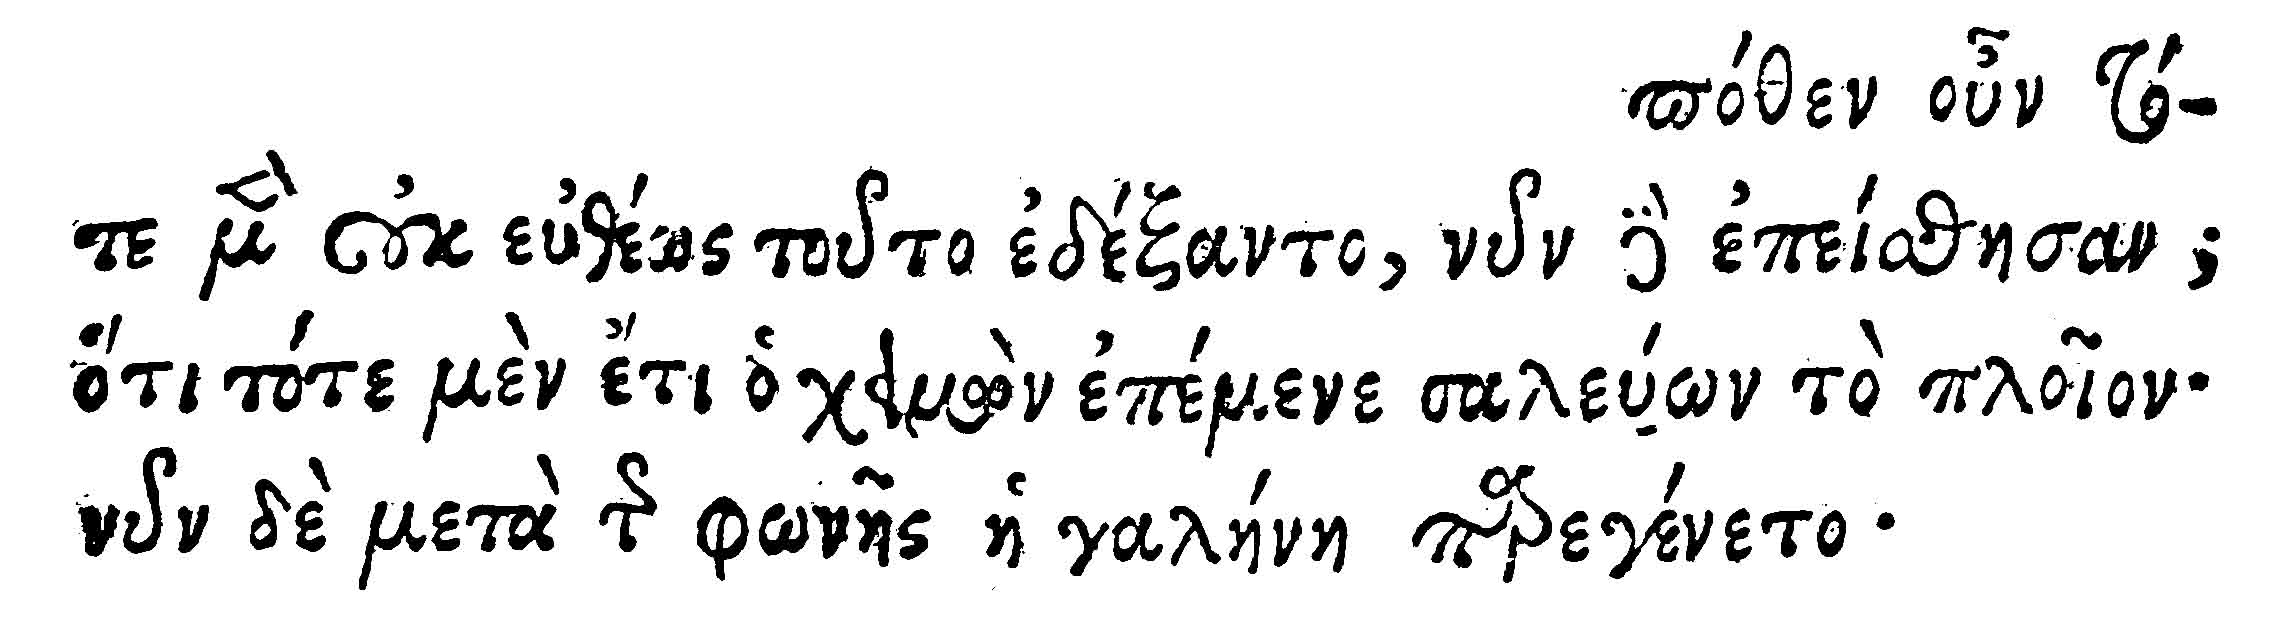 πόθεν οὖν τό-
τε μὲν οὐκ εὐθέως τοῦτο ἐδέξαντο, νῦν δὲ ἐπείσθησαν;
ὅτι τότε μὲν ἔτι ὁ χειμὼν ἐπέμενε σαλεύων τὸ πλοῖον·
νῦν δὲ μετὰ τῆς φωνῆς ἡ γαλήνη παρεγένετο·